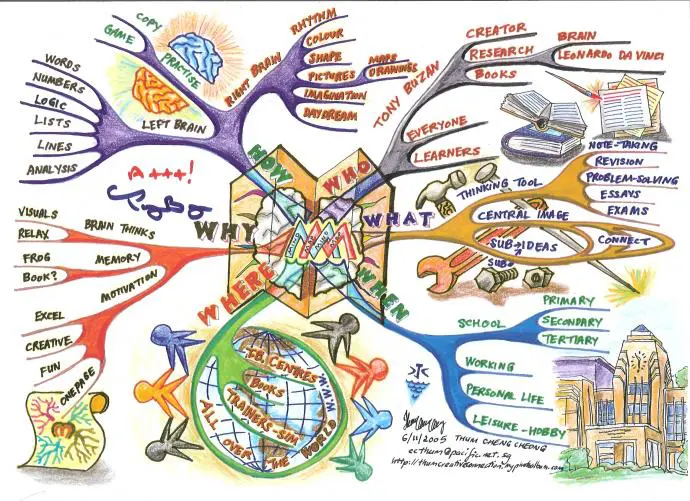 HOW
COPY
GAME
PRACTISE
RIGHT BRAIN
RHYTHM
COLOUR
SHAPE
PICTURES
MAPS
DRAWINGS
IMAGINATION
DAYDREAM
LEFT BRAIN
WORDS
NUMBERS
LOGIC
LISTS
LINES
ANALYSIS
A+++!
WHO
TONY BUZAN
CREATOR
RESEARCH
BRAIN
LEONARDO DA VINCI
BOOKS
EVERYONE
LEARNERS
WHAT
THINKING TOOL
NOTE-TAKING
REVISION
PROBLEM-SOLVING
ESSAYS
EXAMS
CENTRAL IMAGE
SUB→IDEAS
SUB
CONNECT
WHY
BRAIN THINKS
VISUALS
RELAX
MEMORY
FROG
BOOK?
MOTIVATION
EXCEL
CREATIVE
FUN
ONE PAGE
WHERE
T.B. CENTRES
BOOKS
TRAINERS-SIM
W.W.W.
ALL OVER THE WORLD
WHEN
SCHOOL
PRIMARY
SECONDARY
TERTIARY
WORKING
PERSONAL LIFE
LEISURE-HOBBY
6/11/2005 THUM CHENG CHEONG
ccthum@pacific.net.sg